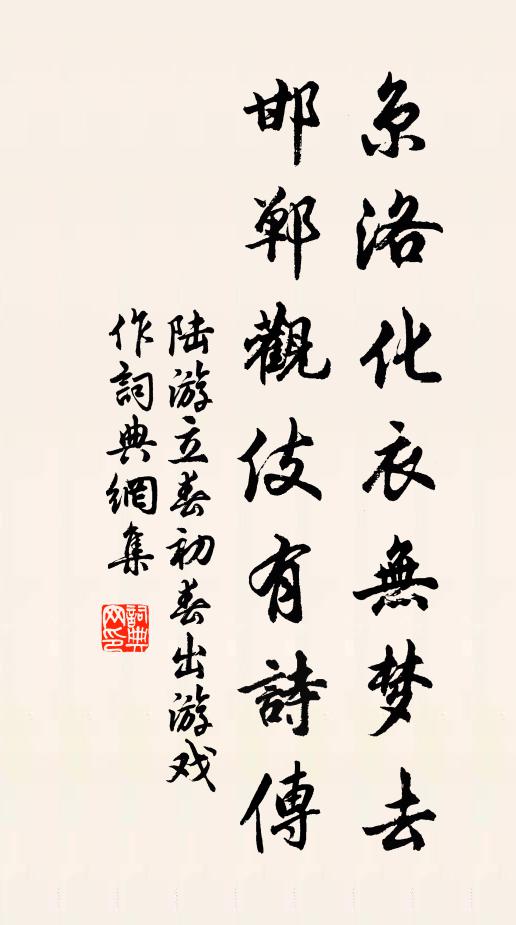 京洛化衣無梦去
邯鄲觀伎有詩傳
陆游立春初春出游戏
作詞典網集
詞典
网印